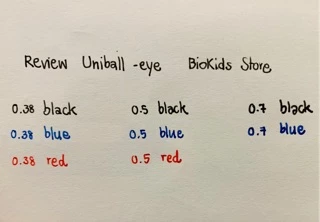 Review Uniball -eye BioKids Store
0.38 black 0.5 black 0.7 black
0.38 blue 0.5 blue 0.7 blue
0.38 red 0.5 red